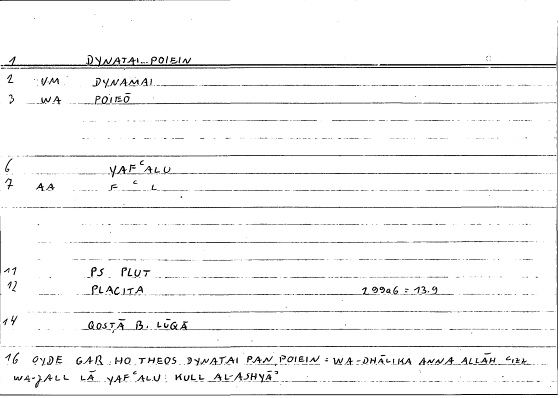 1 DYNATAI...POIEIN
2 VM DYNAMAI
3 WA POIEŌ
6 YAFᶜALU
7 AA F ᶜ L
11 PS. PLUT
12 PLACITA 299a6 = 13.9
14 QOSṬĀ B. LŪQĀ
16 OYDE GAR HO THEOS DYNATAI PAN POIEIN = WA-DHĀLIKA ANNA ALLĀH ᶜIZZ
WA-JALL LĀ YAFᶜALU KULL AL-ASHYĀʾ